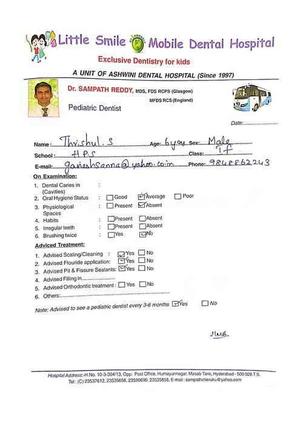 Little Smile Mobile Dental Hospital
Exclusive Dentistry for kids
A UNIT OF ASHWINI DENTAL HOSPITAL (Since 1997)
Dr. SAMPATH REDDY, MDS, FDS RCPS (Glasgow)
MFDS RCS (England)
Pediatric Dentist
Date:
Name: Thrishul.S Age: 6 yrs Sex: Male
School: H.P.S Class:
E-mail: Phone: 9848862243
On Examination:
1. Dental Caries in : (Cavities)
2. Oral Hygiene Status : Good Average Poor
3. Physiological Spaces : Present Absent
4. Habits : Present Absent
5. Irregular teeth : Present Absent
6. Brushing twice : Yes No
Advised Treatment:
1. Advised Scaling/Cleaning : Yes No
2. Advised Flouride application: Yes No
3. Advised Pit & Fissure Sealants: Yes No
4. Advised Filling in
5. Advised Orthodontic treatment : Yes No
6. Others:
Note: Advised to see a pediatric dentist every 3-6 months Yes No
Hospital Address:-H.No. 10-3-304/13, Opp. Post Office, Humayunnagar, Masab Tank, Hyderabad - 500 028 T.S.